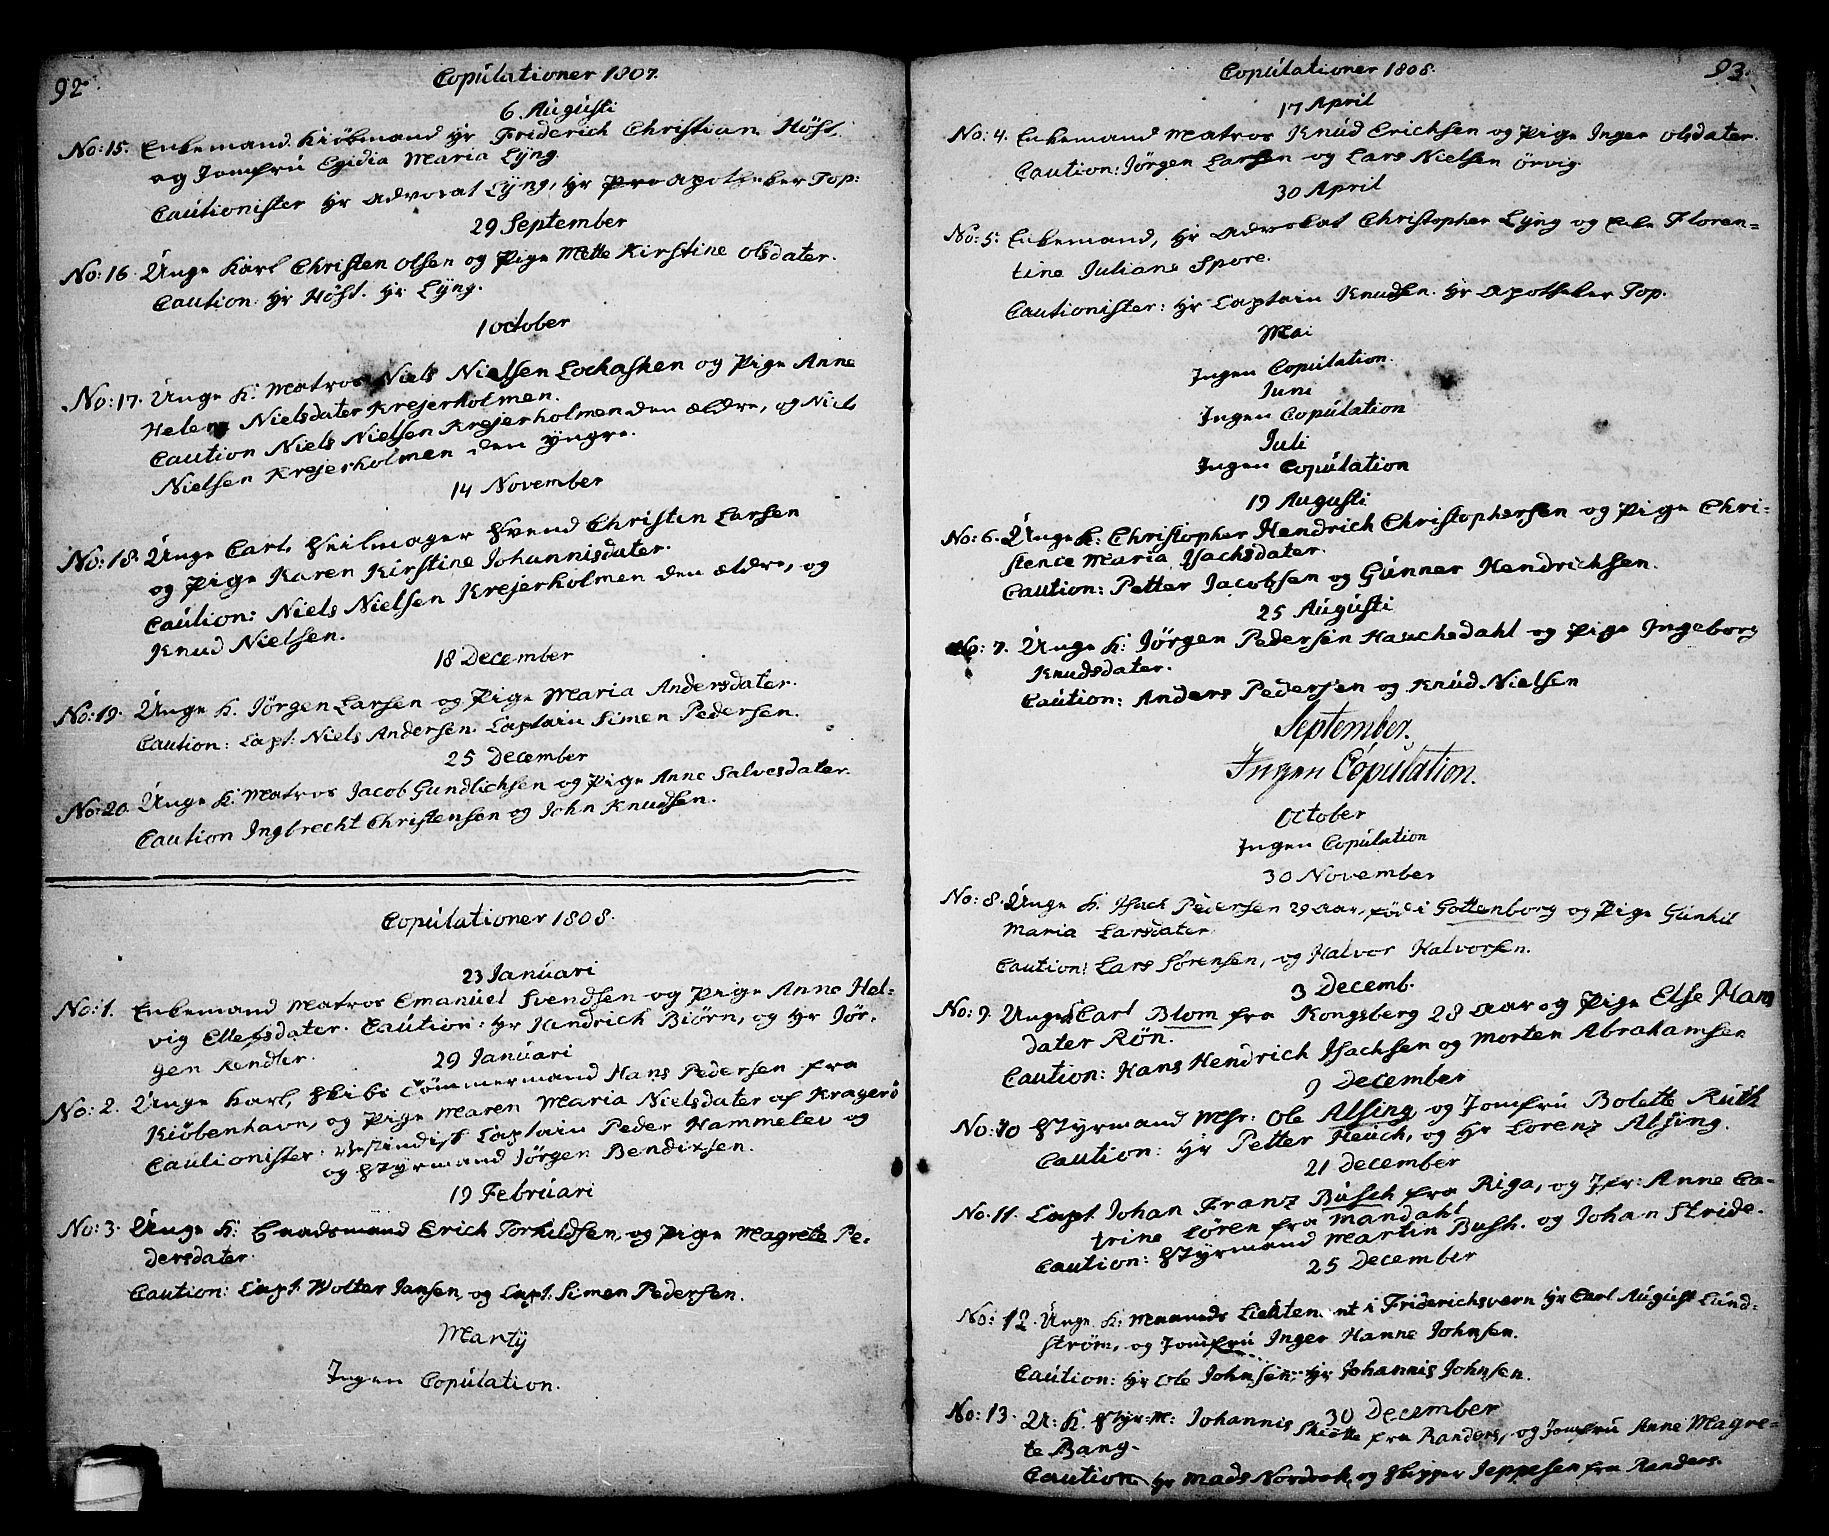 92.
Copulationer 1807.
6. Augusti
No: 15. Enkemand Kiöbmand Hr Friderich Christian Höst.
og Jomfru Egidia Maria Lyng.
Cautionister Hr Advocat Lyng, Hr Pro Apotheker Top:
29 September
No: 16 Unge Karl Christen Olsen og Pige Mette Kirstine Olsdater.
Caution: Hr Höst. Hr Lyng.
1 October
No: 17. Unge K: Matros Niels Nielsen Lochasken og Pige Anne
Helene Nielsdater Krejerholmen.
Caution Niels Nielsen Krejerholmen den ældre, og Niels
Nielsen Krejerholmen den yngre.
14 November
No: 18 Unge Carl, Seilmager Svend Christen Larsen
og Pige Karen Kirstine Johannisdater.
Caution: Niels Nielsen Krejerholmen den ældre, og
Knud Nielsen.
18 December
No: 19. Unge K. Jörgen Larsen og Pige Maria Andersdater.
Caution: Capt: Niels Andersen. Captain Simen Pedersen.
25 December
No: 20. Unge K. Matros Jacob Gundlichsen og Pige Anne Salvesdater.
Caution Ingbrecht Christensen og John Knudsen.
Copulationer 1808.
23 Januari
No: 1. Enkemand Matros Emanuel Svendsen og Pige Anne Hel-
vig Ellefsdater. Caution: Hr Hendrich Biörn, og Hr Jör-
gen Rendler.
29 Januari
No: 2. Unge Karl, Skibs Tömmermand Hans Pedersen fra
Kiöbenhavn, og Pige Maren Maria Nielsdater af Krageröe
Cautionister: Captain Peder Hammeler og
og Styrmand Jörgen Bendixsen.
19 Februari
No: 3 Unge K: Erich Torkildsen, og Pige Magrete Pe-
dersdater.
Caution: Capt. Wolter Jansen, og Capt. Simen Pedersen.
Marty
Ingen Copulation.
93.
Copulationer 1808.
17 April
No: 4. Enkemand Matros Knud Erichsen og Pige Inger Olsdater.
Caution: Jörgen Larsen og Lars Nielsen Örvig.
30 April
No: 5. Enkemand, Hr Advokat Christopher Lyng og Enke Floren-
tine Juliane Spore.
Cautionister: Hr Captain Knudsen. Hr Apotheker Top.
Mai
Ingen Copulation.
Juni
Ingen Copulation
Juli
Ingen Copulation
19 Augusti
No: 6. Unge K: Christopher Hendrich Christophersen og Pige Chri-
stence Maria Isachsdater.
Caution: Petter Jacobsen og Gunner Hendrichsen.
25 Augusti
No: 7. Unge K: Jörgen Pedersen Hauchedahl og Pige Ingeborg
Knudsdater.
Caution: Anders Pedersen og Knud Nielsen
September.
Ingen Copulation.
October
Ingen Copulation
30 November
No: 8. Unge K. Isach Pedersen 29 Aar, föd i Gottenborg og Pige Gunhil
Maria Larsdater.
Caution: Lars Sörensen, og Halvor Halvorsen.
3 Decemb.
No: 9. Unge Carl Blom fra Kongsberg 28 Aar og Pige Else Hans
dater Rön.
Caution: Hans Hendrich Isachsen og Morten Abrahamsen
9 December
No: 10 Styrmand Msr: Ole Alsing, og Jomfru Bolette Ruth
Caution: Hr Petter Heuch, og Hr Lorenz Alsing.
21 December
No: 11. Capt. Johan Franz Busch fra Riga, og Jfr: Anne Ca-
trine Lören fra Mandahl
Caution: Styrmand Martin Bush. og Johan Stride.
25 December
No: 12. Unge K: Lieutenant i Friderichsvern Hr Carl August Lund-
ström, og Jomfru Inger Hanne Johnsen.
Caution: Hr Ole Johnsen, Hr Johannis Johnsen.
30 December
No: 13. U: K. Styr: M: Johannis Skiötte fra Randers, og Jomfru Anne Magre-
te Bang.
Caution Hr Mads Nordrok, og Skipper Jeppesen fra Randers.